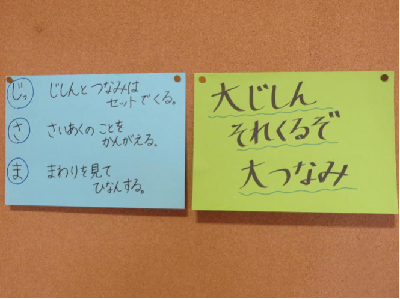 じっ じしんと つなみは
セットでくる。
さ さいあくの ことを
かんがえる。
ま まわりを見て
ひなんする。
大じしん
それくるぞ
大つなみ